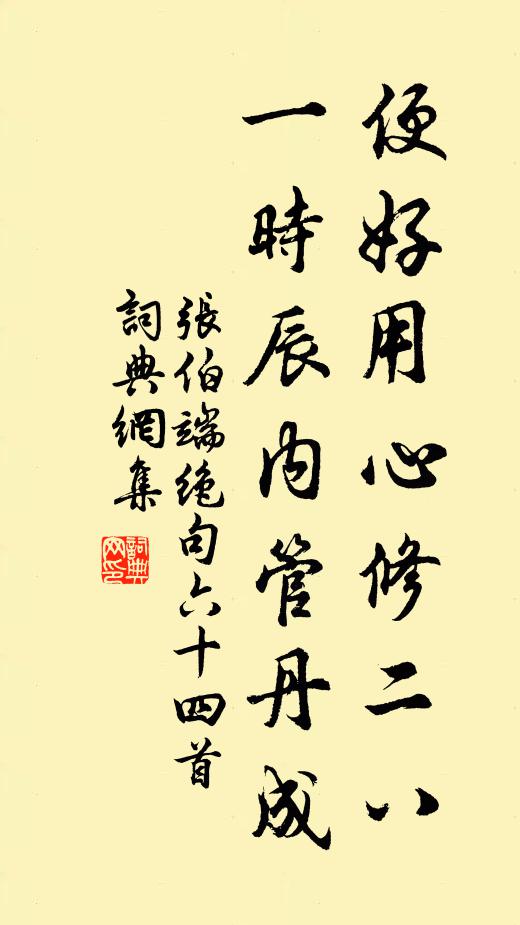 便好用心修二八
一時辰內管丹成
張伯端絶句六十四首
詞典網集
詞典網印